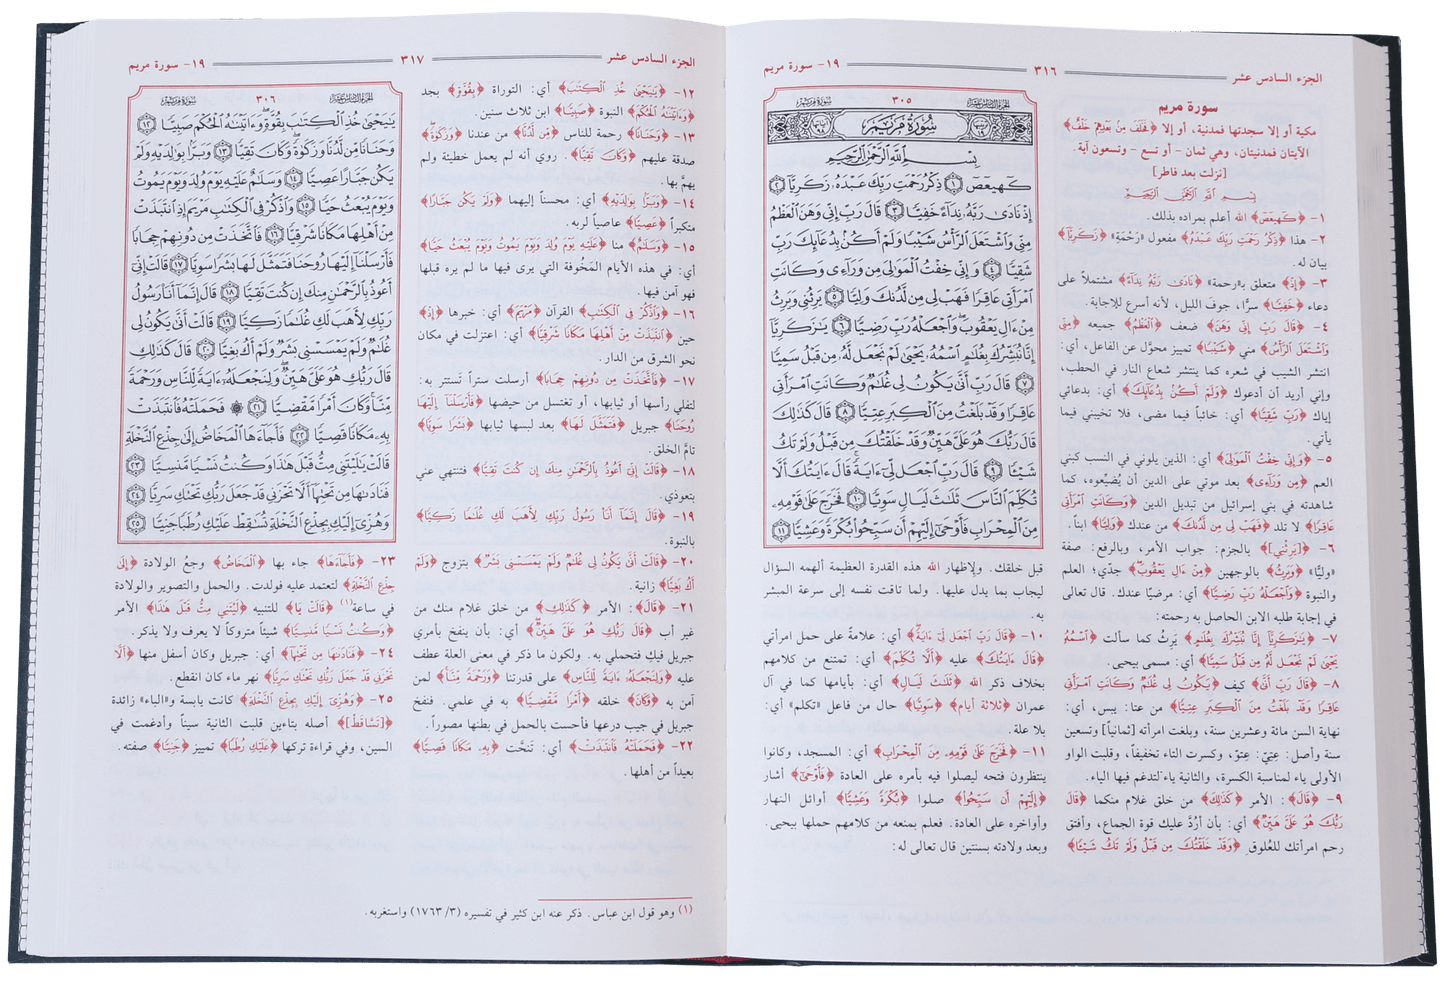 الجزء السادس عشر ٣١٦ ١٩- سورة مريم
سورة مريم
مكية أو إلا سجدتها فمدنية، أو إلا ﴿فَخَلَفَ مِنْ بَعْدِهِمْ خَلْفٌ﴾
الآيتان فمدنيتان، وهي ثمان - أو تسع - وتسعون آية.
[نزلت بعد فاطر]
بِسْمِ اللَّهِ الرَّحْمَٰنِ الرَّحِيمِ
١- ﴿كٓهيعٓصٓ﴾ الله أعلم بمراده بذلك.
٢- هذا ﴿ذِكْرُ رَحْمَتِ رَبِّكَ عَبْدَهُ﴾ مفعول «رَحْمَةِ» ﴿زَكَرِيَّآ﴾
بيان له.
٣- ﴿إِذْ﴾ متعلق بـ«رحمة» ﴿نَادَىٰ رَبَّهُۥ نِدَآءً﴾ مشتملاً على
دعاء ﴿خَفِيًّا﴾ سرًّا، جوفَ الليل، لأنه أسرع للإجابة.
٤- ﴿قَالَ رَبِّ إِنِّى وَهَنَ﴾ ضعف ﴿ٱلْعَظْمُ﴾ جميعه ﴿مِنِّى
وَٱشْتَعَلَ ٱلرَّأْسُ﴾ مني ﴿شَيْبًا﴾ تمييز محوَّل عن الفاعل، أي:
انتشر الشيب في شعره كما ينتشر شعاع النار في الحطب،
وإني أريد أن أدعوك ﴿وَلَمْ أَكُنۢ بِدُعَآئِكَ﴾ أي: بدعائي
إياك ﴿رَبِّ شَقِيًّا﴾ أي: خائباً فيما مضى، فلا تخيبني فيما
يأتي.
٥- ﴿وَإِنِّى خِفْتُ ٱلْمَوَٰلِىَ﴾ أي: الذين يلوني في النسب كبني
العم ﴿مِن وَرَآءِى﴾ بعد موتي على الدين أن يُضَيِّعوه، كما
شاهدته في بني إسرائيل من تبديل الدين ﴿وَكَانَتِ ٱمْرَأَتِى
عَاقِرًا﴾ لا تلد ﴿فَهَبْ لِى مِن لَّدُنكَ﴾ من عندك ﴿وَلِيًّا﴾ ابناً.
٦- ﴿يَرِثُنِى﴾ بالجزم: جواب الأمر، وبالرفع: صفة
«وليًّا» ﴿وَيَرِثُ﴾ بالوجهين ﴿مِنْ ءَالِ يَعْقُوبَ﴾ جدّي؛ العلم
والنبوة ﴿وَٱجْعَلْهُ رَبِّ رَضِيًّا﴾ أي: مرضيًّا عندك. قال تعالى
في إجابة طلبه الابن الحاصل به رحمته:
٧- ﴿يَٰزَكَرِيَّآ إِنَّا نُبَشِّرُكَ بِغُلَٰمٍ﴾ يَرِثُ كما سألت ﴿ٱسْمُهُۥ
يَحْيَىٰ لَمْ نَجْعَل لَّهُۥ مِن قَبْلُ سَمِيًّا﴾ أي: مسمى بيحيى.
٨- ﴿قَالَ رَبِّ أَنَّىٰ﴾ كيف ﴿يَكُونُ لِى غُلَٰمٌ وَكَانَتِ ٱمْرَأَتِى
عَاقِرًا وَقَدْ بَلَغْتُ مِنَ ٱلْكِبَرِ عِتِيًّا﴾ من عتا: يبس، أي:
نهاية السن مائة وعشرين سنة، وبلغت امرأته [ثمانياً] وتسعين
سنة وأصل: عِتِيّ: عِتوّ، وكسرت التاء تخفيفاً، وقلبت الواو
الأولى ياء لمناسبة الكسرة، والثانية ياء لتدغم فيها الياء.
٩- ﴿قَالَ﴾: الأمر ﴿كَذَٰلِكَ﴾ من خلق غلام منكما ﴿قَالَ
رَبُّكَ هُوَ عَلَىَّ هَيِّنٌ﴾ أي: بأن أرُدَّ عليك قوة الجماع، وأفتق
رحم امرأتك للعُلوقِ ﴿وَقَدْ خَلَقْتُكَ مِن قَبْلُ وَلَمْ تَكُ شَيْـًٔا﴾
سُورَةُ مَرْيَمَ ٣٠٥ الجُزْءُ السَّادِسَ عَشَر
سُورَةُ مَرْيَمَ
بِسْمِ ٱللَّهِ ٱلرَّحْمَٰنِ ٱلرَّحِيمِ
كٓهيعٓصٓ ١ ذِكْرُ رَحْمَتِ رَبِّكَ عَبْدَهُۥ زَكَرِيَّآ ٢
إِذْ نَادَىٰ رَبَّهُۥ نِدَآءً خَفِيًّا ٣ قَالَ رَبِّ إِنِّى وَهَنَ ٱلْعَظْمُ
مِنِّى وَٱشْتَعَلَ ٱلرَّأْسُ شَيْبًا وَلَمْ أَكُنۢ بِدُعَآئِكَ رَبِّ
شَقِيًّا ٤ وَإِنِّى خِفْتُ ٱلْمَوَٰلِىَ مِن وَرَآءِى وَكَانَتِ
ٱمْرَأَتِى عَاقِرًا فَهَبْ لِى مِن لَّدُنكَ وَلِيًّا ٥ يَرِثُنِى وَيَرِثُ
مِنْ ءَالِ يَعْقُوبَ وَٱجْعَلْهُ رَبِّ رَضِيًّا ٦ يَٰزَكَرِيَّآ
إِنَّا نُبَشِّرُكَ بِغُلَٰمٍ ٱسْمُهُۥ يَحْيَىٰ لَمْ نَجْعَل لَّهُۥ مِن قَبْلُ سَمِيًّا
٧ قَالَ رَبِّ أَنَّىٰ يَكُونُ لِى غُلَٰمٌ وَكَانَتِ ٱمْرَأَتِى
عَاقِرًا وَقَدْ بَلَغْتُ مِنَ ٱلْكِبَرِ عِتِيًّا ٨ قَالَ كَذَٰلِكَ
قَالَ رَبُّكَ هُوَ عَلَىَّ هَيِّنٌ وَقَدْ خَلَقْتُكَ مِن قَبْلُ وَلَمْ تَكُ
شَيْـًٔا ٩ قَالَ رَبِّ ٱجْعَل لِّىٓ ءَايَةً قَالَ ءَايَتُكَ أَلَّا
تُكَلِّمَ ٱلنَّاسَ ثَلَٰثَ لَيَالٍ سَوِيًّا ١٠ فَخَرَجَ عَلَىٰ قَوْمِهِۦ
مِنَ ٱلْمِحْرَابِ فَأَوْحَىٰٓ إِلَيْهِمْ أَن سَبِّحُوا۟ بُكْرَةً وَعَشِيًّا ١١
قبل خلقك. ولإظهار الله هذه القدرة العظيمة ألهمه السؤال
ليجاب بما يدل عليها. ولما تاقت نفسه إلى سرعة المبشر
به.
١٠- ﴿قَالَ رَبِّ ٱجْعَل لِّىٓ ءَايَةً﴾ أي: علامةً على حمل امرأتي
﴿قَالَ ءَايَتُكَ﴾ عليه ﴿أَلَّا تُكَلِّمَ﴾ أي: تمتنع من كلامهم
بخلاف ذكر الله ﴿ثَلَٰثَ لَيَالٍ﴾ أي: بأيامها كما في آل
عمران ﴿ثلاثة أيام﴾ ﴿سَوِيًّا﴾ حال من فاعل «تكلم» أي:
بلا علة.
١١- ﴿فَخَرَجَ عَلَىٰ قَوْمِهِۦ مِنَ ٱلْمِحْرَابِ﴾ أي: المسجد، وكانوا
ينتظرون فتحه ليصلوا فيه بأمره على العادة ﴿فَأَوْحَىٰٓ﴾ أشار
﴿إِلَيْهِمْ أَن سَبِّحُوا۟﴾ صلوا ﴿بُكْرَةً وَعَشِيًّا﴾ أوائل النهار
وأواخره على العادة. فعلم بمنعه من كلامهم حملها بيحيى.
وبعد ولادته بسنتين قال تعالى له:
الجزء السادس عشر ٣١٧ ١٩- سورة مريم
١٢- ﴿يَٰيَحْيَىٰ خُذِ ٱلْكِتَٰبَ﴾ أي: التوراة ﴿بِقُوَّةٍ﴾ بجد
﴿وَءَاتَيْنَٰهُ ٱلْحُكْمَ﴾ النبوة ﴿صَبِيًّا﴾ ابن ثلاث سنين.
١٣- ﴿وَحَنَانًا﴾ رحمة للناس ﴿مِّن لَّدُنَّا﴾ من عندنا ﴿وَزَكَوٰةً﴾
صدقة عليهم ﴿وَكَانَ تَقِيًّا﴾. روي أنه لم يعمل خطيئة ولم
يهمَّ بها.
١٤- ﴿وَبَرًّۢا بِوَٰلِدَيْهِ﴾ أي: محسناً إليهما ﴿وَلَمْ يَكُن جَبَّارًا﴾
متكبراً ﴿عَصِيًّا﴾ عاصياً لربه.
١٥- ﴿وَسَلَٰمٌ﴾ منا ﴿عَلَيْهِ يَوْمَ وُلِدَ وَيَوْمَ يَمُوتُ وَيَوْمَ يُبْعَثُ حَيًّا﴾
أي: في هذه الأيام المَخُوفة التي يرى فيها ما لم يره قبلها
فهو آمن فيها.
١٦- ﴿وَٱذْكُرْ فِى ٱلْكِتَٰبِ﴾ القرآن ﴿مَرْيَمَ﴾ أي: خبرها ﴿إِذِ﴾
حين ﴿ٱنتَبَذَتْ مِنْ أَهْلِهَا مَكَانًا شَرْقِيًّا﴾ أي: اعتزلت في مكان
نحو الشرق من الدار.
١٧- ﴿فَٱتَّخَذَتْ مِن دُونِهِمْ حِجَابًا﴾ أرسلت ستراً تَستتر به:
لتفلي رأسها أو ثيابها، أو تغتسل من حيضها ﴿فَأَرْسَلْنَآ إِلَيْهَا
رُوحَنَا﴾ جبريل ﴿فَتَمَثَّلَ لَهَا﴾ بعد لبسها ثيابها ﴿بَشَرًا سَوِيًّا﴾
تامّ الخلق.
١٨- ﴿قَالَتْ إِنِّىٓ أَعُوذُ بِٱلرَّحْمَٰنِ مِنكَ إِن كُنتَ تَقِيًّا﴾ فتنتهي عني
بتعوذي.
١٩- ﴿قَالَ إِنَّمَآ أَنَا۠ رَسُولُ رَبِّكِ لِأَهَبَ لَكِ غُلَٰمًا زَكِيًّا﴾
بالنبوة.
٢٠- ﴿قَالَتْ أَنَّىٰ يَكُونُ لِى غُلَٰمٌ وَلَمْ يَمْسَسْنِى بَشَرٌ﴾ بتزوج ﴿وَلَمْ
أَكُ بَغِيًّا﴾ زانية.
٢١- ﴿قَالَ﴾: الأمر ﴿كَذَٰلِكِ﴾ من خلق غلام منك من
غير أب ﴿قَالَ رَبُّكِ هُوَ عَلَىَّ هَيِّنٌ﴾ أي: بأن ينفخ بأمري
جبريل فيكِ فتحملي به. ولكون ما ذكر في معنى العلة عطف
عليه ﴿وَلِنَجْعَلَهُۥٓ ءَايَةً لِّلنَّاسِ﴾ على قدرتنا ﴿وَرَحْمَةً مِّنَّا﴾ لمن
آمن به ﴿وَكَانَ﴾ خلقه ﴿أَمْرًا مَّقْضِيًّا﴾ به في علمي. فنفخ
جبريل في جيب درعها فأحست بالحمل في بطنها مصوراً.
٢٢- ﴿فَحَمَلَتْهُ فَٱنتَبَذَتْ﴾ أي: تنحَّت ﴿بِهِۦ مَكَانًا قَصِيًّا﴾
بعيداً من أهلها.
سُورَةُ مَرْيَمَ ٣٠٦ الجُزْءُ السَّادِسَ عَشَر
يَٰيَحْيَىٰ خُذِ ٱلْكِتَٰبَ بِقُوَّةٍ وَءَاتَيْنَٰهُ ٱلْحُكْمَ صَبِيًّا ١٢
وَحَنَانًا مِّن لَّدُنَّا وَزَكَوٰةً وَكَانَ تَقِيًّا ١٣ وَبَرًّۢا بِوَٰلِدَيْهِ وَلَمْ
يَكُن جَبَّارًا عَصِيًّا ١٤ وَسَلَٰمٌ عَلَيْهِ يَوْمَ وُلِدَ وَيَوْمَ يَمُوتُ
وَيَوْمَ يُبْعَثُ حَيًّا ١٥ وَٱذْكُرْ فِى ٱلْكِتَٰبِ مَرْيَمَ إِذِ ٱنتَبَذَتْ
مِنْ أَهْلِهَا مَكَانًا شَرْقِيًّا ١٦ فَٱتَّخَذَتْ مِن دُونِهِمْ حِجَابًا
فَأَرْسَلْنَآ إِلَيْهَا رُوحَنَا فَتَمَثَّلَ لَهَا بَشَرًا سَوِيًّا ١٧ قَالَتْ إِنِّىٓ
أَعُوذُ بِٱلرَّحْمَٰنِ مِنكَ إِن كُنتَ تَقِيًّا ١٨ قَالَ إِنَّمَآ أَنَا۠ رَسُولُ
رَبِّكِ لِأَهَبَ لَكِ غُلَٰمًا زَكِيًّا ١٩ قَالَتْ أَنَّىٰ يَكُونُ لِى
غُلَٰمٌ وَلَمْ يَمْسَسْنِى بَشَرٌ وَلَمْ أَكُ بَغِيًّا ٢٠ قَالَ كَذَٰلِكِ
قَالَ رَبُّكِ هُوَ عَلَىَّ هَيِّنٌ وَلِنَجْعَلَهُۥٓ ءَايَةً لِّلنَّاسِ وَرَحْمَةً
مِّنَّا وَكَانَ أَمْرًا مَّقْضِيًّا ٢١ فَحَمَلَتْهُ فَٱنتَبَذَتْ
بِهِۦ مَكَانًا قَصِيًّا ٢٢ فَأَجَآءَهَا ٱلْمَخَاضُ إِلَىٰ جِذْعِ ٱلنَّخْلَةِ
قَالَتْ يَٰلَيْتَنِى مِتُّ قَبْلَ هَٰذَا وَكُنتُ نَسْيًا مَّنسِيًّا ٢٣
فَنَادَىٰهَا مِن تَحْتِهَآ أَلَّا تَحْزَنِى قَدْ جَعَلَ رَبُّكِ تَحْتَكِ سَرِيًّا ٢٤
وَهُزِّىٓ إِلَيْكِ بِجِذْعِ ٱلنَّخْلَةِ تُسَٰقِطْ عَلَيْكِ رُطَبًا جَنِيًّا ٢٥
٢٣- ﴿فَأَجَآءَهَا﴾ جاء بها ﴿ٱلْمَخَاضُ﴾ وجعُ الولادة ﴿إِلَىٰ
جِذْعِ ٱلنَّخْلَةِ﴾ لتعتمد عليه فولدت. والحمل والتصوير والولادة
في ساعة(١) ﴿قَالَتْ يَا﴾ للتنبيه ﴿لَيْتَنِى مِتُّ قَبْلَ هَٰذَا﴾ الأمر
﴿وَكُنتُ نَسْيًا مَّنسِيًّا﴾ شيئاً متروكاً لا يعرف ولا يذكر.
٢٤- ﴿فَنَادَىٰهَا مِن تَحْتِهَآ﴾ أي: جبريل وكان أسفل منها ﴿أَلَّا
تَحْزَنِى قَدْ جَعَلَ رَبُّكِ تَحْتَكِ سَرِيًّا﴾ نهر ماء كان انقطع.
٢٥- ﴿وَهُزِّىٓ إِلَيْكِ بِجِذْعِ ٱلنَّخْلَةِ﴾ كانت يابسة و«الباء» زائدة
﴿[تَسَّاقَطْ]﴾ أصله بتاءين قلبت الثانية سيناً وأدغمت في
السين، وفي قراءة تركها ﴿عَلَيْكِ رُطَبًا﴾ تمييز ﴿جَنِيًّا﴾ صفته.
(١) وهو قول ابن عباس. ذكر عنه ابن كثير في تفسيره (٣/ ١٧٦٣) واستغربه.